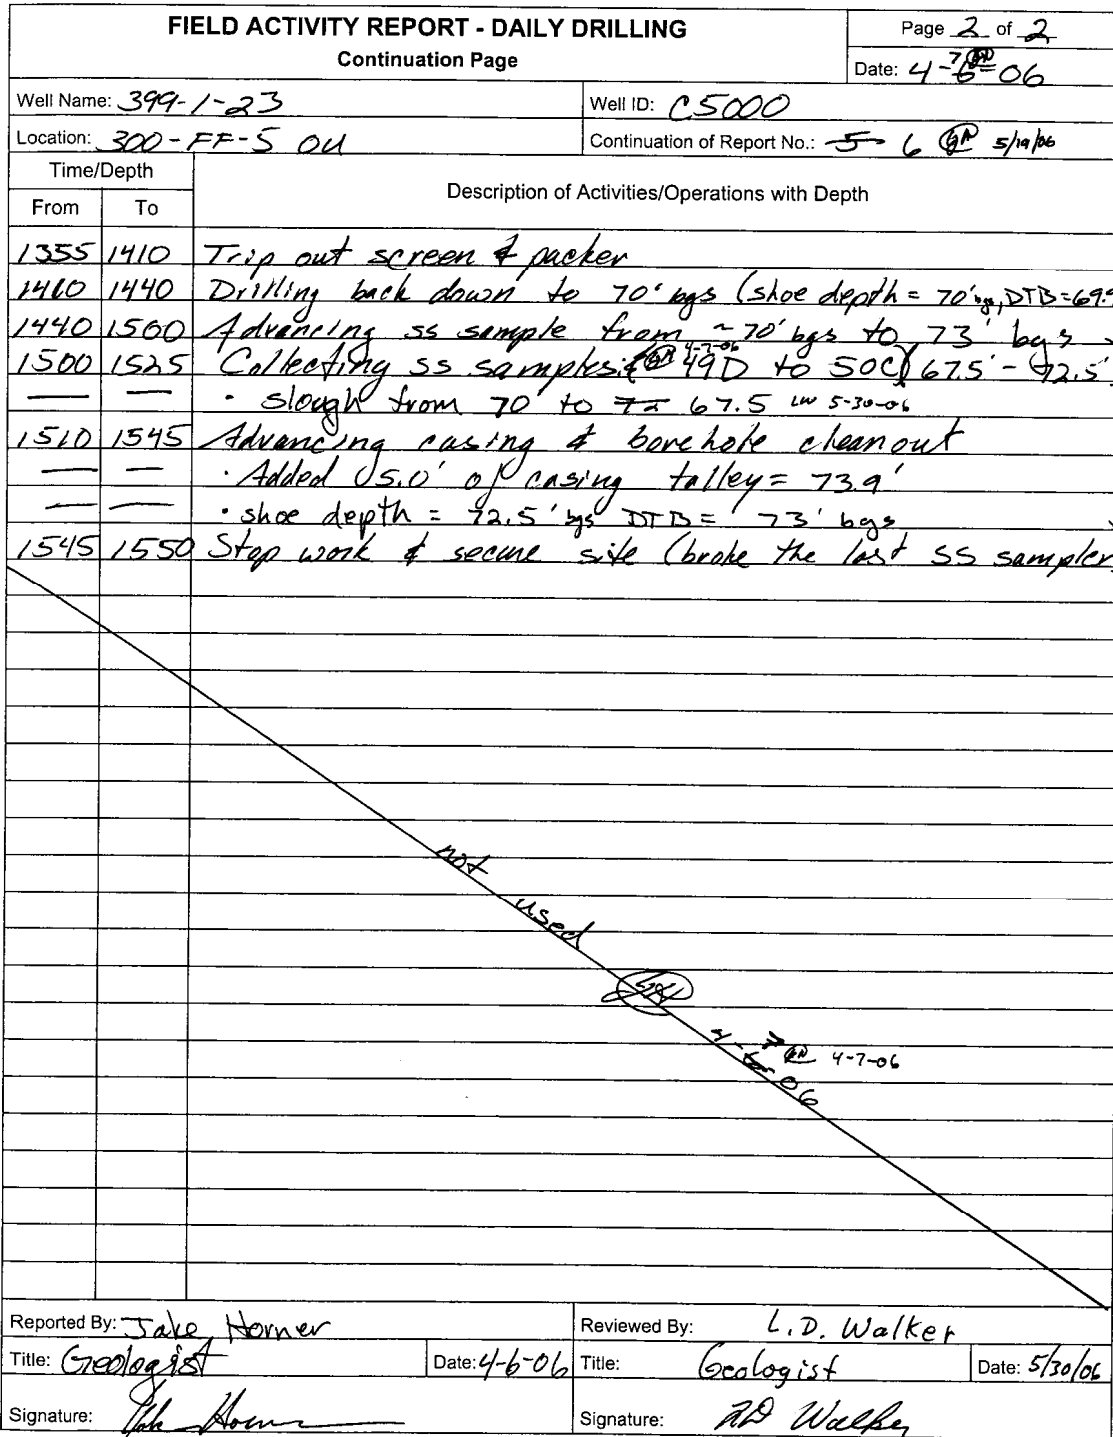 FIELD ACTIVITY REPORT - DAILY DRILLING
Continuation Page
Page 2 of 2
Date: 4-6-06 7
Well Name: 399-1-23
Well ID: C5000
Location: 300-FF-5 OU
Continuation of Report No.: 5 6 5/19/06
Time/Depth
From To
Description of Activities/Operations with Depth
1355 1410 Trip out screen & packer
1410 1440 Drilling back down to 70' bgs (shoe depth = 70' bgs, DTB=69.9
1440 1500 Advancing ss sample from ~70' bgs to 73' bgs
1500 1525 Collecting ss samples 4-7-06 49D to 50C) 67.5' - 72.5'
— — · slough from 70' to 72 67.5 LW 5-30-06
1510 1545 Advancing casing & borehole cleanout
— — · Added 5.0' of casing talley = 73.9'
— — · shoe depth = 72.5' bgs DTB = 73' bgs
1545 1550 Stop work & secure site (broke the last SS sampler
not used
4-6-06 7 4-7-06
Reported By: Jake Horner
Reviewed By: L.D. Walker
Title: Geologist
Date: 4-6-06
Title: Geologist
Date: 5/30/06
Signature: Jake Horner
Signature: LD Walker